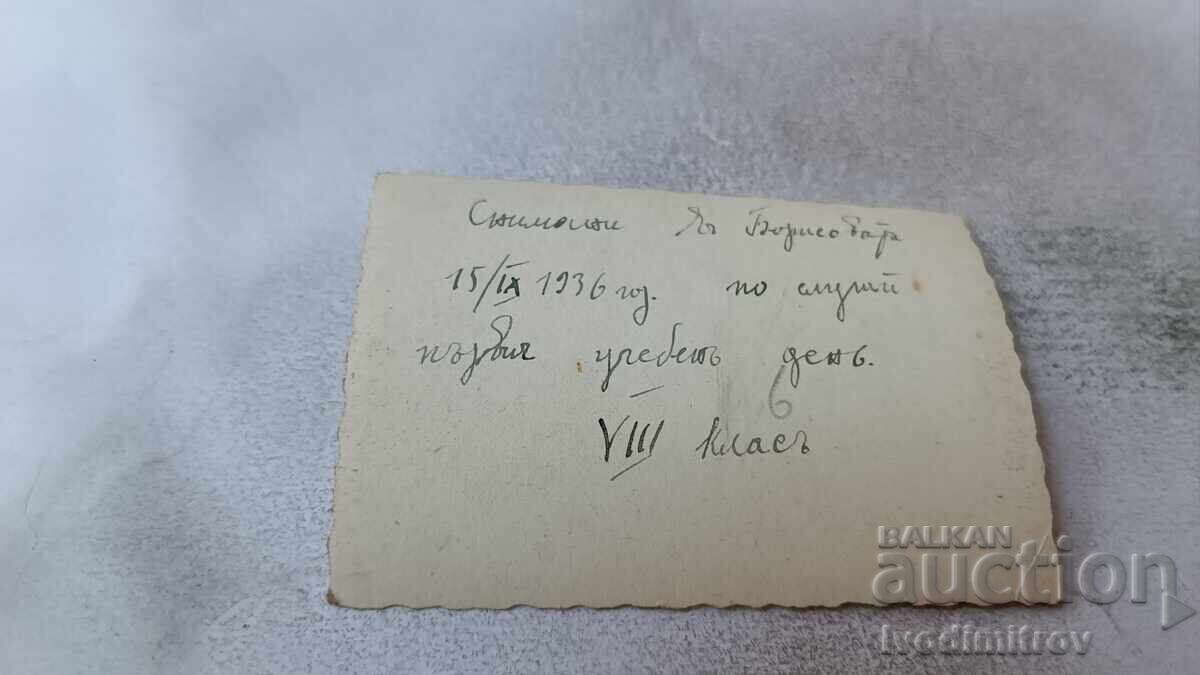 Снимани въ Борисовата
15/IX 1936 год. по случай
първия учебенъ день.
6
VIII класъ
BALKAN
auction
Ivodimitrov